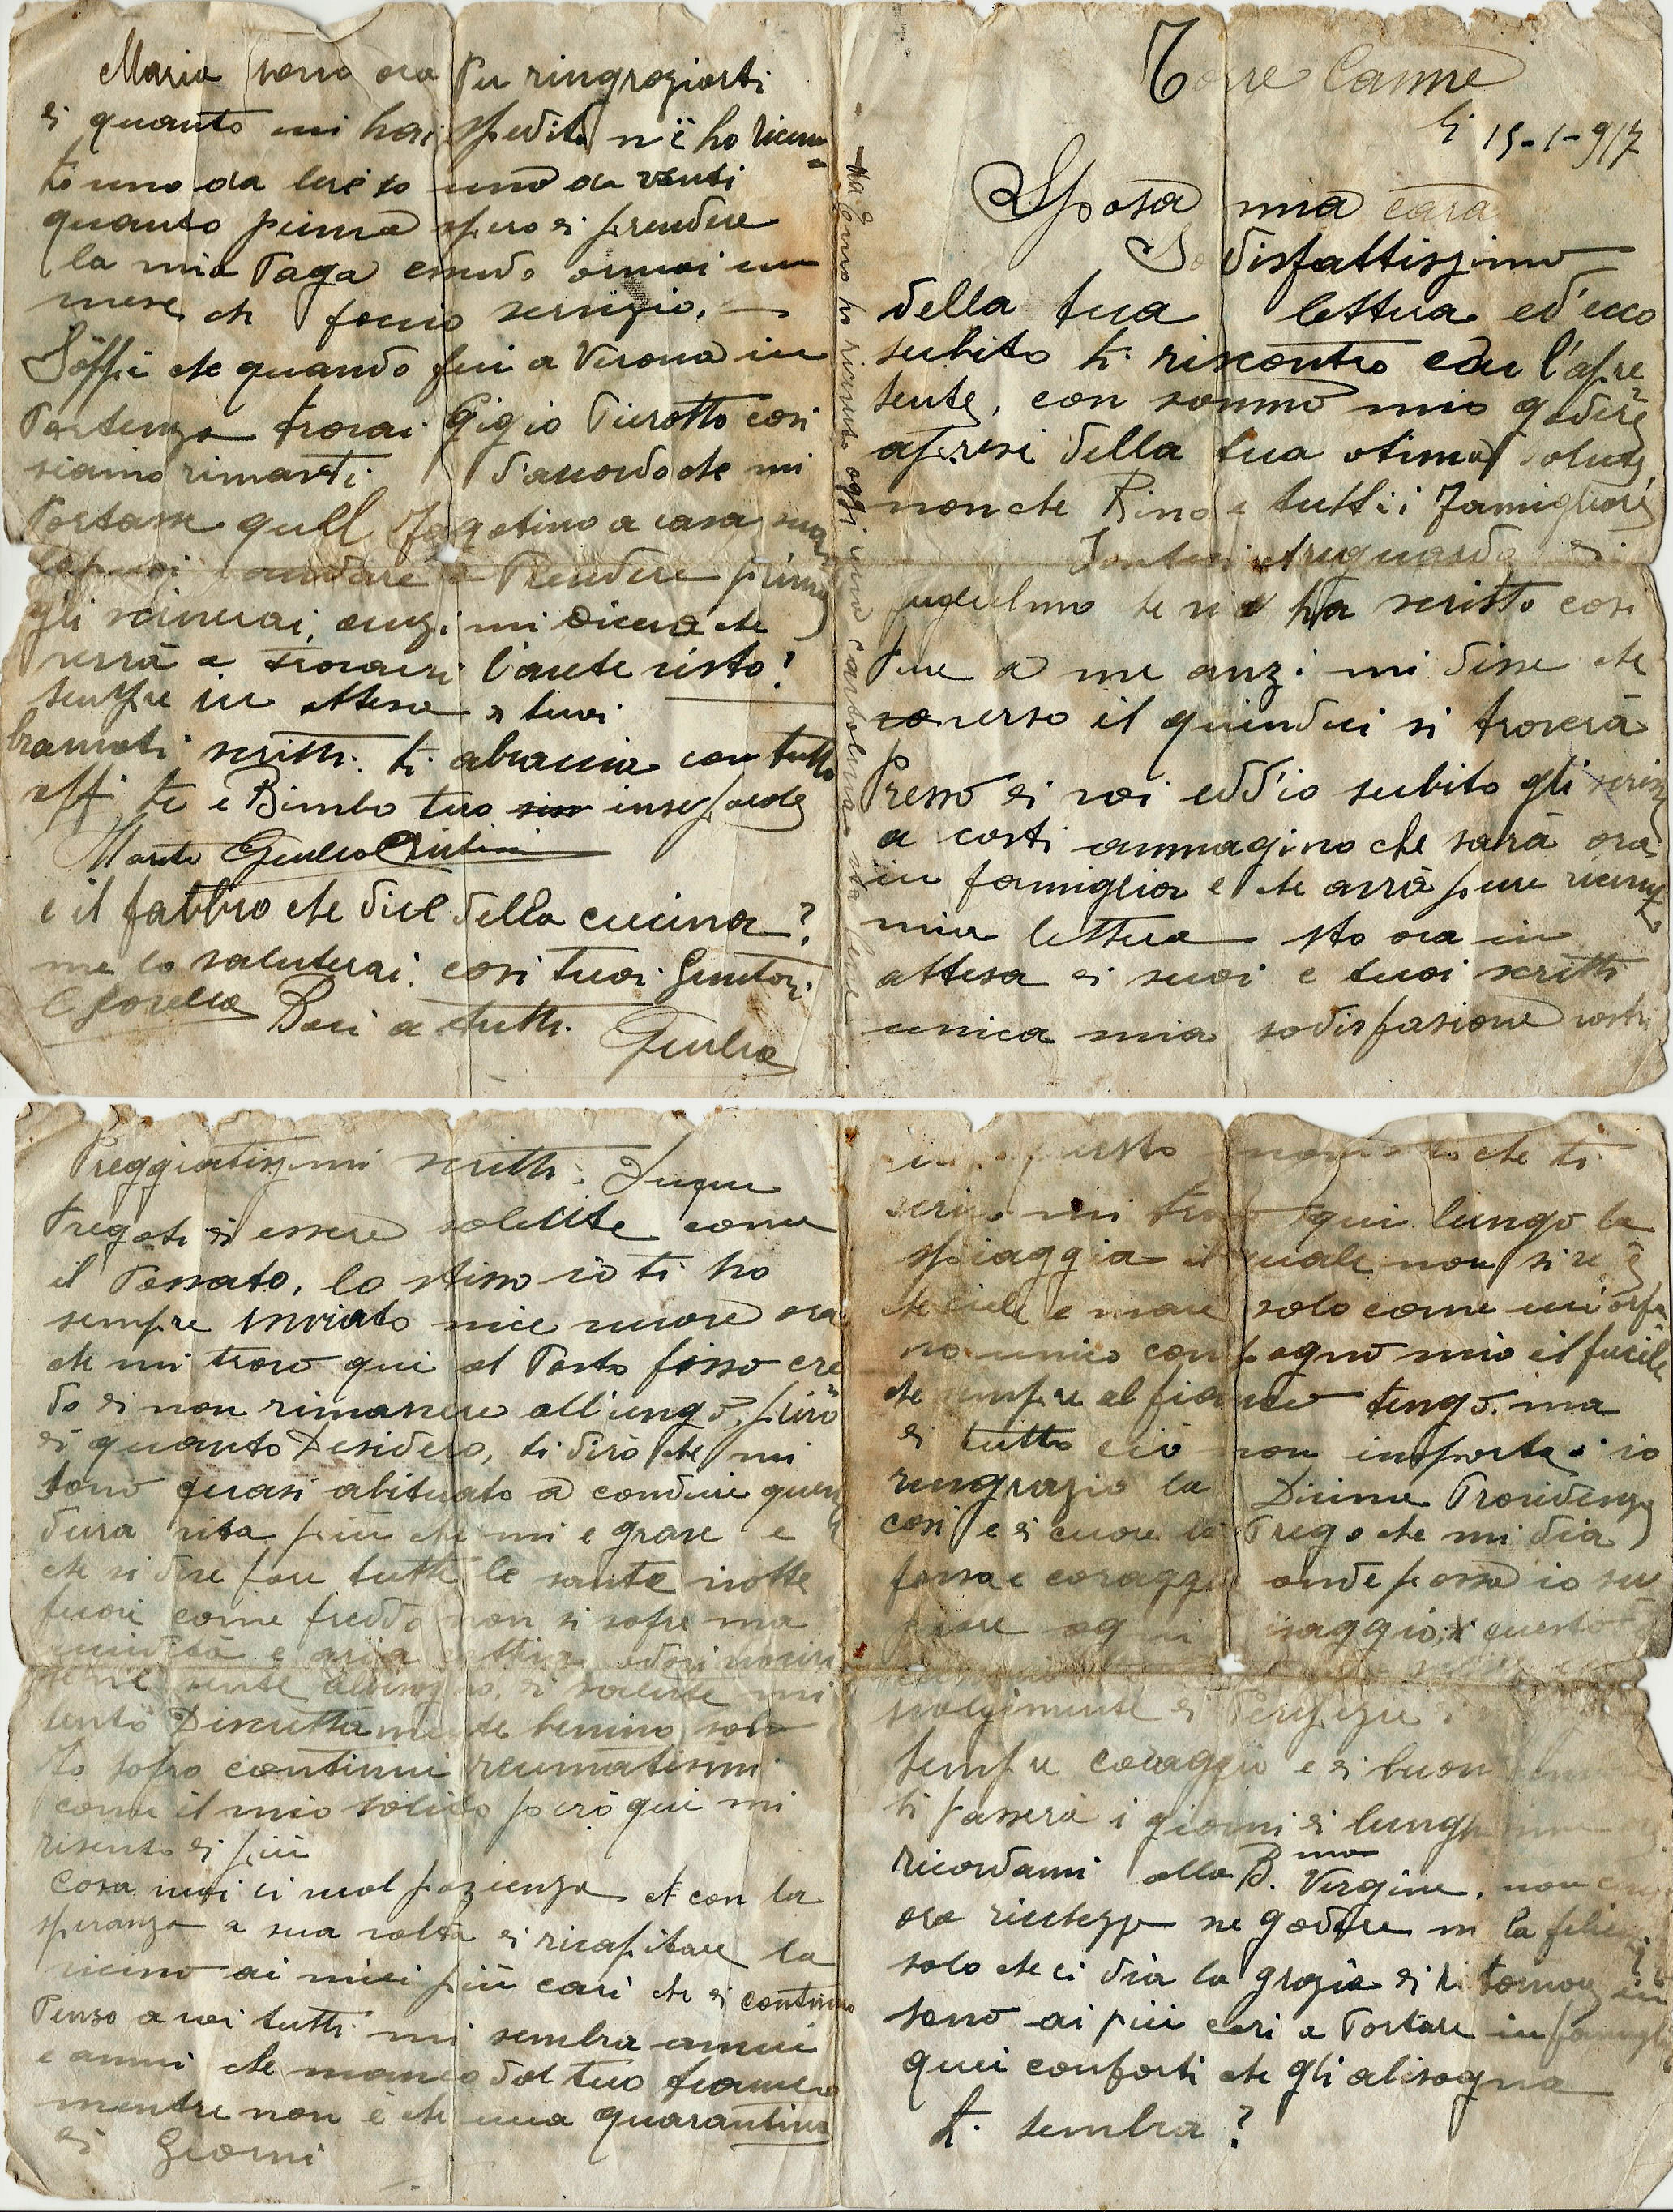 Torre Canne
li 15-1-917
Sposa mia cara
Sodisfattissimo
della tua lettera ed'ecco
subito ti riscontro con l'apre
sente, con sommo mio godere
apresi della tua otima salute
nonche Rino e tutti i Famigliari
Intesi riguardo di
Guglielmo se vi ha scritto così
Pure a me anzi mi disse che
verso il quindici si troverà
Presso di voi edd'io subito gli scrissi
a costì ammagino che sarà ora
in famiglia e che avrà pure ricevuto
mia lettera sto ora in
attesa di suoi e tuoi scritti
unica mia sodisfasione vostri
Preggiatissimi scritti: Dunque
Pregoti di essere solecite come
il Passato, lo stisso io ti ho
sempre inviato mie nuove ora
che mi trovo qui al Posto fisso cre
do di non rimanere all'ungo, però
di quanto Desidero, ti dirò che mi
sono quasi abituato a condure questa
dura vita più che mi e grave e
che si deve fare tutte le sante notte
fuori come freddo non si sofre ma
umidità e aria cattiva odori nocivi
di salute mi
sento Discrettamente benino solo
to sofro continui reumatismi
come il mio solido però qui mi
risento di più
Cosa vuoi ci vuol pazienza che con la
speranza a sua volta di ricapitare la
vicino ai miei più cari che di continuo
Penso a voi tutti mi sembra annui
e anni che manco dal tuo fianco
mentre non è che una quarantina
di Giorni
in questo momento che ti
scrivo mi trovo qui lungo la
spiaggia il quale non si ve
che ciele e mare solo come un orfa
no unico compagno mio il fucile
che sempre al fianco tengo. ma
di tutto ciò non importa io
ringrazio la Divina Providenza
così e di cuore la Prego che mi dia
forsa e coraggio onde possa io su
perare ogni disaggio, questo
svolgimente di Peripezie:
sempre coraggio e di buon
ti passerà i giorni di lungh
ricordami alla B.ma V. Vergine, non
ora ricchezze ne godere m la felici
solo che ci dia la grazia di ritornar in
seno ai più cari a Portare in famiglia
quei conforti che gli abisogna
ti sembra?
Maria sono ora Per ringraziarti
di quanto mi hai spedito n'è ho ricevu
to uno da lire 10 uno da venti
quanto prima spero di prendere
la mia Paga essendo ormai un
mese che faccio servizio.
Sappi che quando fui a Verona in
Partenza trovai Gigio Pierotto così
siamo rimasti d'accordo che mi
Portasse quell Fagotino a casa sua
la puoi andare a Prendere prima
gli scriverai, anzi mi diceva che
verrà a trovarvi l'avete visto?
sempre in attesa di tuoi
bramati scritti. ti abraccia con tutto
aff. te e Bimbo tuo insep
Marito Giulio Cristini
e il fabbro che dice della cucina?
me lo saluterai. così tuoi Genitori
e sorella Baci a tutti.
Giulio
ho ricevuto oggi una cartolina